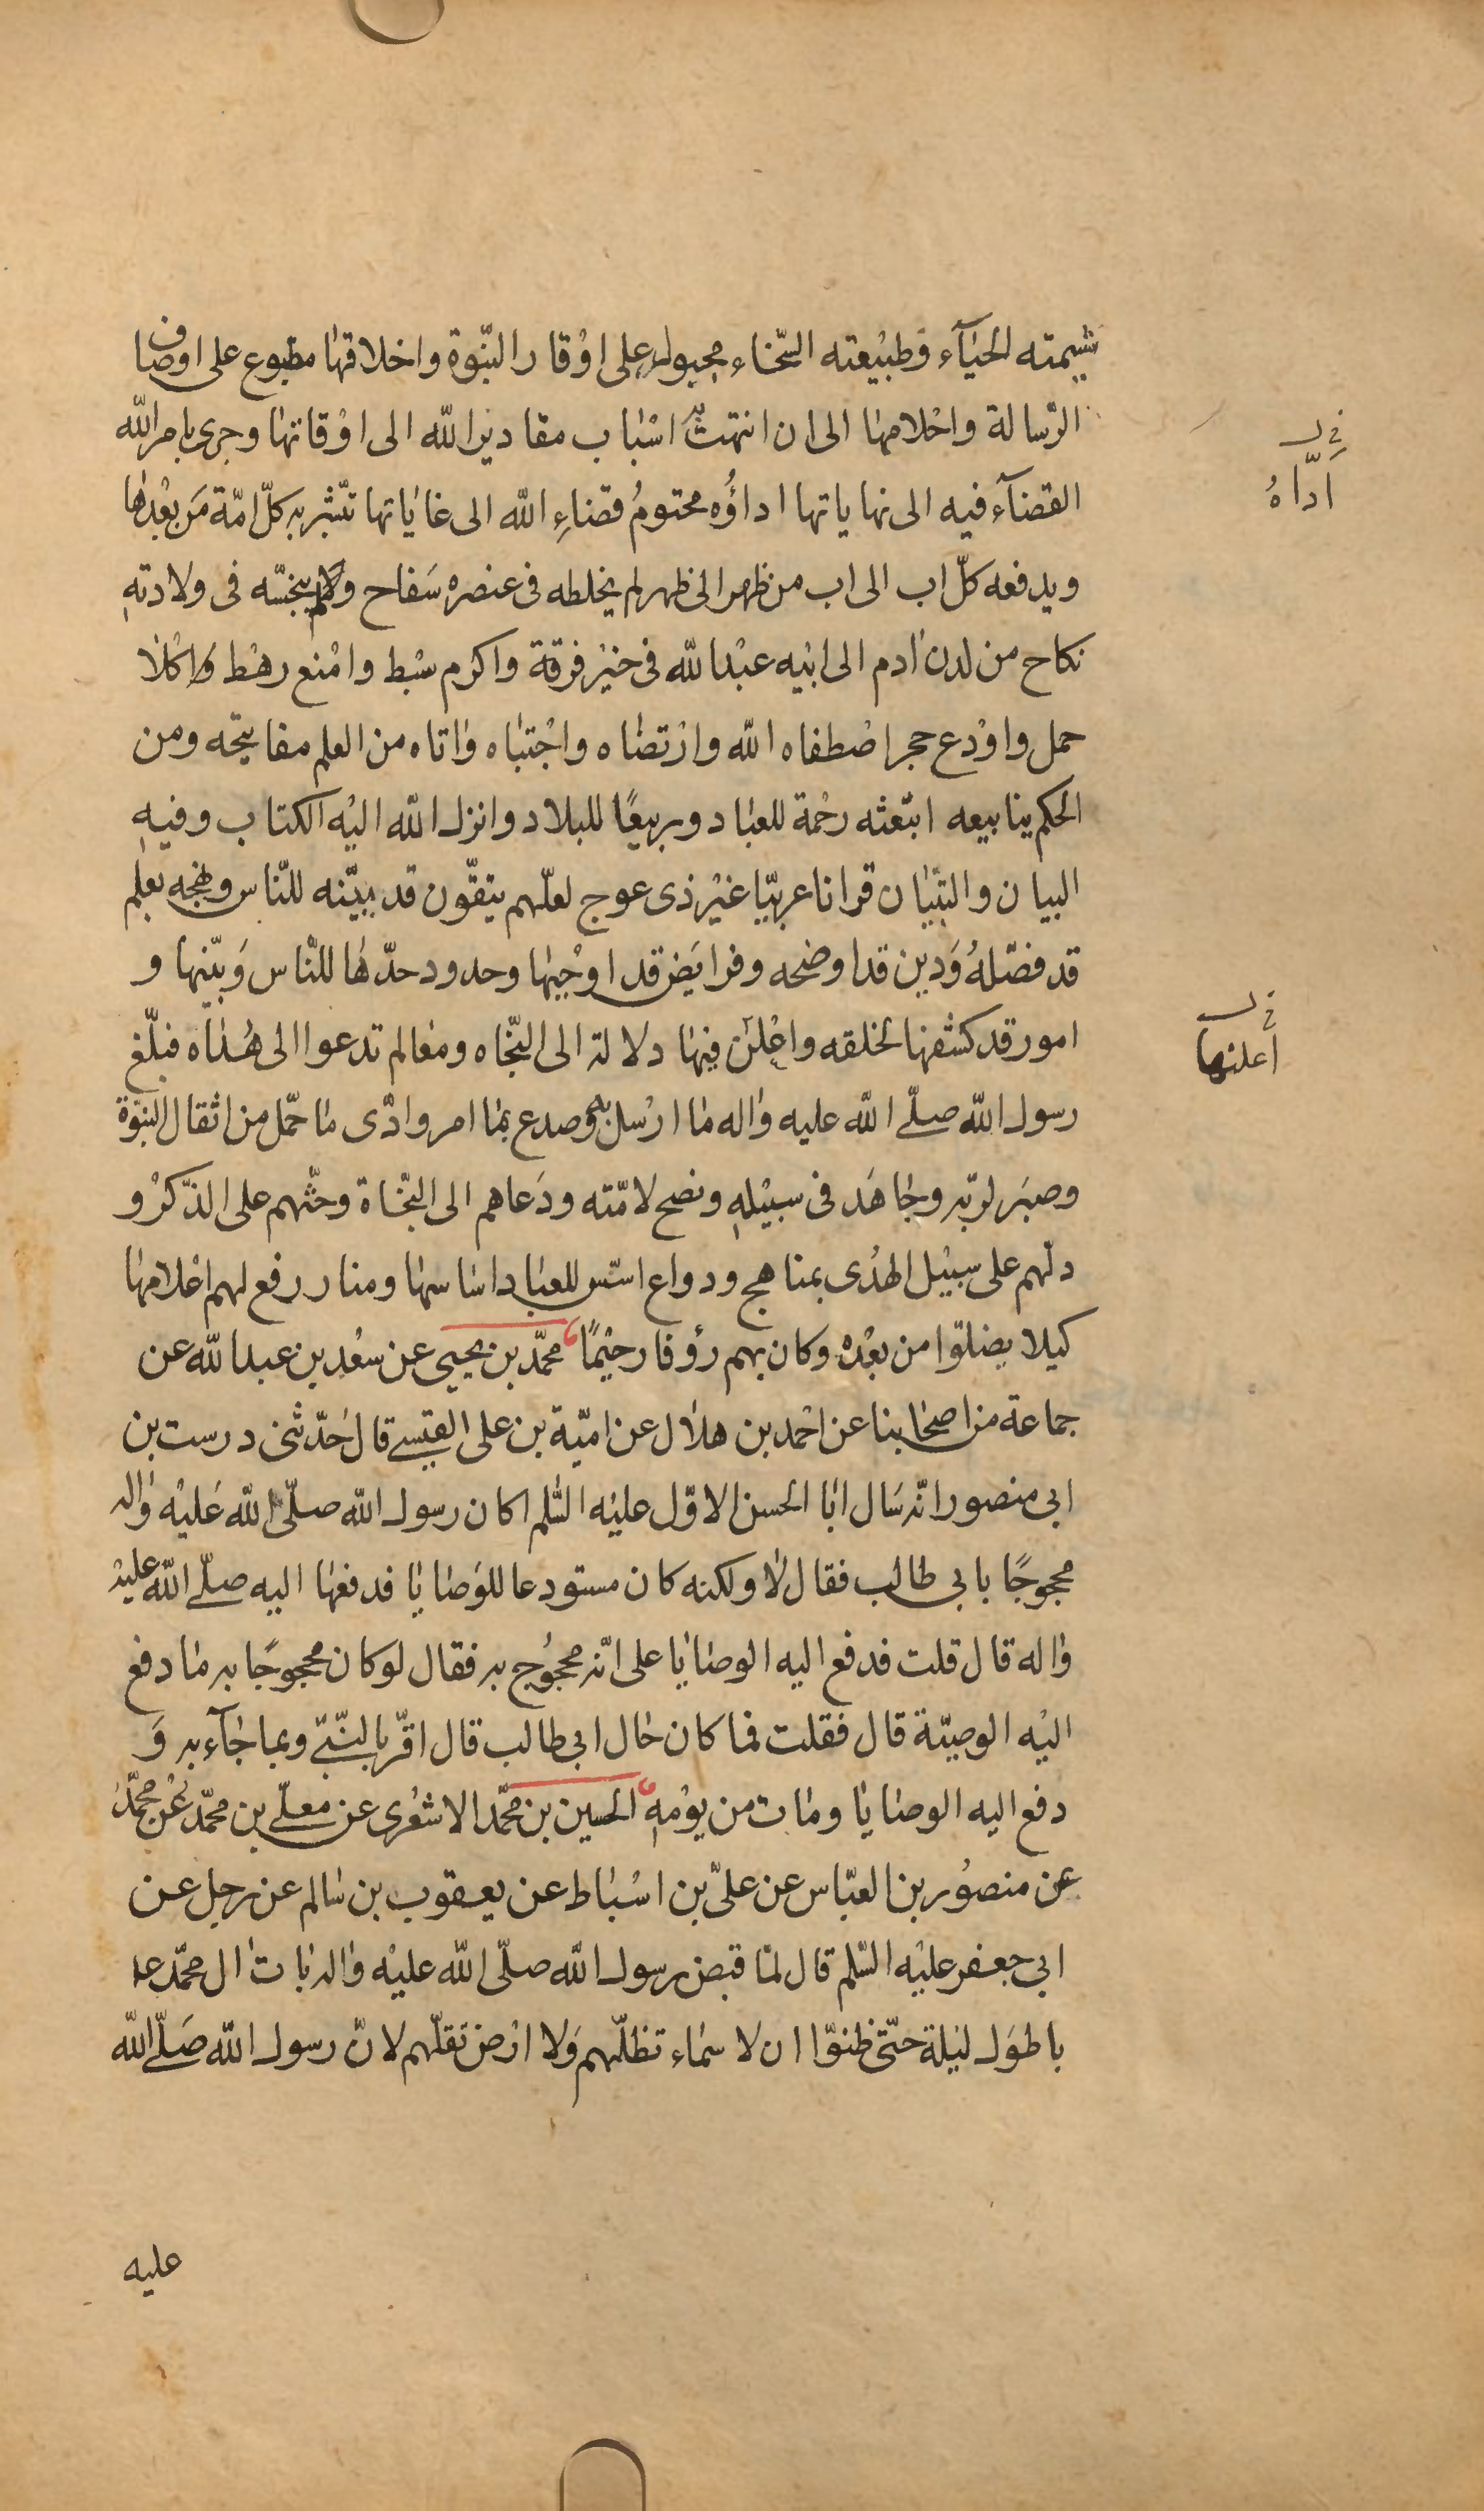 شيمته الحياء وطبيعته السخاء مجبول على اوقار النبوة واخلاقها مطبوع على اوصاف
الرسالة واحلامها الى ان انتهت به اسباب مقادير الله الى اوقاتها وجرى بامر الله
القضآء فيه الى نهاياتها اداؤه محتوم قضاء الله الى غاياتها تبشر به كلّ امّة من بعدها
ويدفعه كلّ اب الى اب من ظهر الى ظهر لم يخلطه فى عنصره سفاح ولم ينجسه فى ولادته
نكاح من لدن ادم الى ابيه عبد الله فى خير فرقة واكرم سبط وامنع رهط واكلا
حمل واودع حجر اصطفاه الله وارتضاه واجتباه واتاه من العلم مفاتيحه ومن
الحكم ينابيعه ابتعثه رحمة للعباد وربيعًا للبلاد وانزل الله اليه الكتاب وفيه
البيان والتبيان قرانا عربيّا غير ذى عوج لعلّهم يتقّون قد بيّنه للنّاس ونهجه بعلم
قد فصّله ودين قد اوضحه وفرايض قد اوجبها وحدود حدّها للنّاس وبيّنها و
امور قد كشفها لخلقه واعلن فيها دلالة الى النجّاه ومعالم تدعوا الى هُداه فبلّغ
رسول الله صلّى الله عليه واله ما ارسل به وصدع بما امر وادّى ما حمّل من اثقال النبوّة
وصبر لربّه وجاهد فى سبيله ونصح لامّته ودعاهم الى النجّاة وحثّهم على الذّكر و
دلّهم على سبيل الهدى بمناهج ودواع اسّس للعباد اساسها ومنار رفع لهم اعلامها
كيلا يضلّوا من بعده وكان بهم رؤفا رحيمًا محمّد بن يحيى عن سعد بن عبد الله عن
جماعة من اصحابنا عن احمد بن هلال عن اميّة بن على القيسى قال حدّثنى درست بن
ابى منصور انّه سال ابا الحسن الاوّل عليه السّلم اكان رسول الله صلّى الله عليه واله
محجوجًا بابى طالب فقال لا ولكنه كان مستودعا للوصايا فدفعها اليه صلّى الله عليه
واله قال قلت فدفع اليه الوصايا على انّه محجوج به فقال لو كان محجوجًا به ما دفع
اليه الوصيّة قال فقلت فما كان حال ابى طالب قال اقرّ بالنّبىّ وبما جآء به و
دفع اليه الوصايا ومات من يومه الحسين بن محمّد الاشعرى عن معلّى بن محمّد عن محمّد
عن منصور بن العبّاس عن علىّ بن اسباط عن يعقوب بن سالم عن رجل عن
ابى جعفر عليه السّلم قال لمّا قبض رسول الله صلّى الله عليه واله بات ال محمّد
باطول ليلة حتّى ظنوّا ان لا سماء تظلّهم ولا ارض تقلّهم لانّ رسول الله صلّى الله
عليه
اداهُ
اعلنها